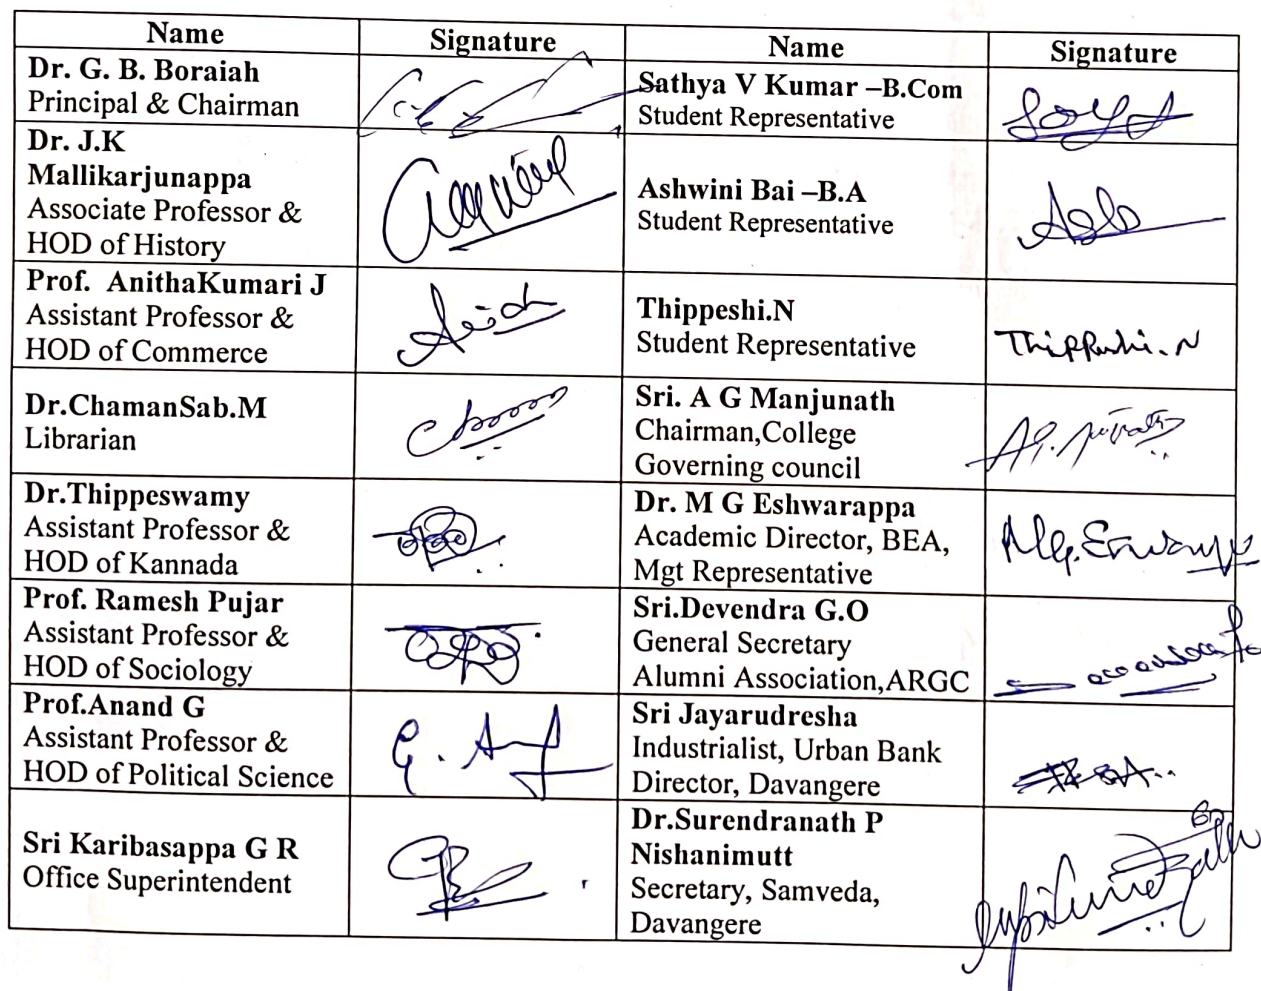 Name Signature Name Signature
Dr. G. B. Boraiah
Principal & Chairman
Sathya V Kumar –B.Com
Student Representative
Dr. J.K
Mallikarjunappa
Associate Professor &
HOD of History
Ashwini Bai –B.A
Student Representative
Prof. AnithaKumari J
Assistant Professor &
HOD of Commerce
Thippeshi.N
Student Representative
Thippeshi.N
Dr.ChamanSab.M
Librarian
Sri. A G Manjunath
Chairman,College
Governing council
Dr.Thippeswamy
Assistant Professor &
HOD of Kannada
Dr. M G Eshwarappa
Academic Director, BEA,
Mgt Representative
Prof. Ramesh Pujar
Assistant Professor &
HOD of Sociology
Sri.Devendra G.O
General Secretary
Alumni Association,ARGC
Prof.Anand G
Assistant Professor &
HOD of Political Science
Sri Jayarudresha
Industrialist, Urban Bank
Director, Davangere
Sri Karibasappa G R
Office Superintendent
Dr.Surendranath P
Nishanimutt
Secretary, Samveda,
Davangere